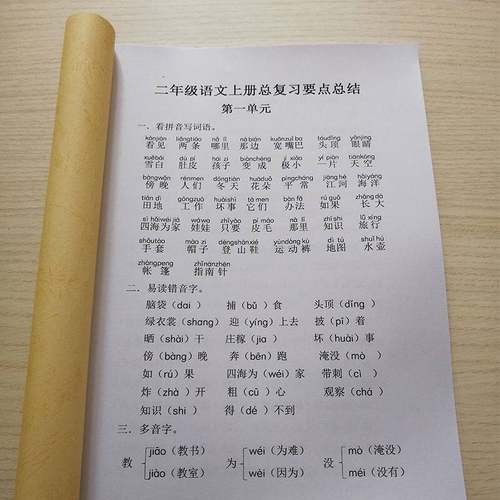 二年级语文上册总复习要点总结
第一单元
一．看拼音写词语。
kànjiàn liǎngtiáo nǎ lǐ nà biān kuānzuǐ ba tóudǐng yǎnjing
看见 两条 哪里 那边 宽嘴巴 头顶 眼睛
xuěbái dù pí hái zi biànchéng jí xiǎo yí piàn tiānkōng
雪白 肚皮 孩子 变成 极小 一片 天空
bàngwǎn rénmen dōngtiān huāduǒ píngcháng jiānghé hǎiyáng
傍晚 人们 冬天 花朵 平常 江河 海洋
tián dì gōngzuò huàishì tā men bàn fǎ rú guǒ zhǎng dà
田地 工作 坏事 它们 办法 如果 长大
sì hǎiwéi jiā wá wa zhǐyào pí máo nà lǐ zhī shi lǚ xíng
四海为家 娃娃 只要 皮毛 那里 知识 旅行
shǒutào mào zi dēngshānxié yùndòng kù dì tú shuǐ hú
手套 帽子 登山鞋 运动裤 地图 水壶
zhàngpeng zhǐnánzhēn
帐篷 指南针
二．易读错音字。
脑袋（dai ） 捕（bǔ ）食 头顶（dǐng ）
绿衣裳（shang） 迎（yíng）上去 披（pī）着
晒（shài）干 庄稼（jia ） 坏（huài）事
傍（bàng）晚 奔（bēn）跑 淹没（mò ）
如（rú）果 四海为（wéi）家 带刺（cì ）
炸（zhà ）开 粗（cū ）心 观察（chá ）
知识（shi ） 得（dé ）不到
三．多音字。
jiāo（教书） wéi（为难） mò（淹没）
教 为 没
jiào（教室） wèi（因为） méi（没有）